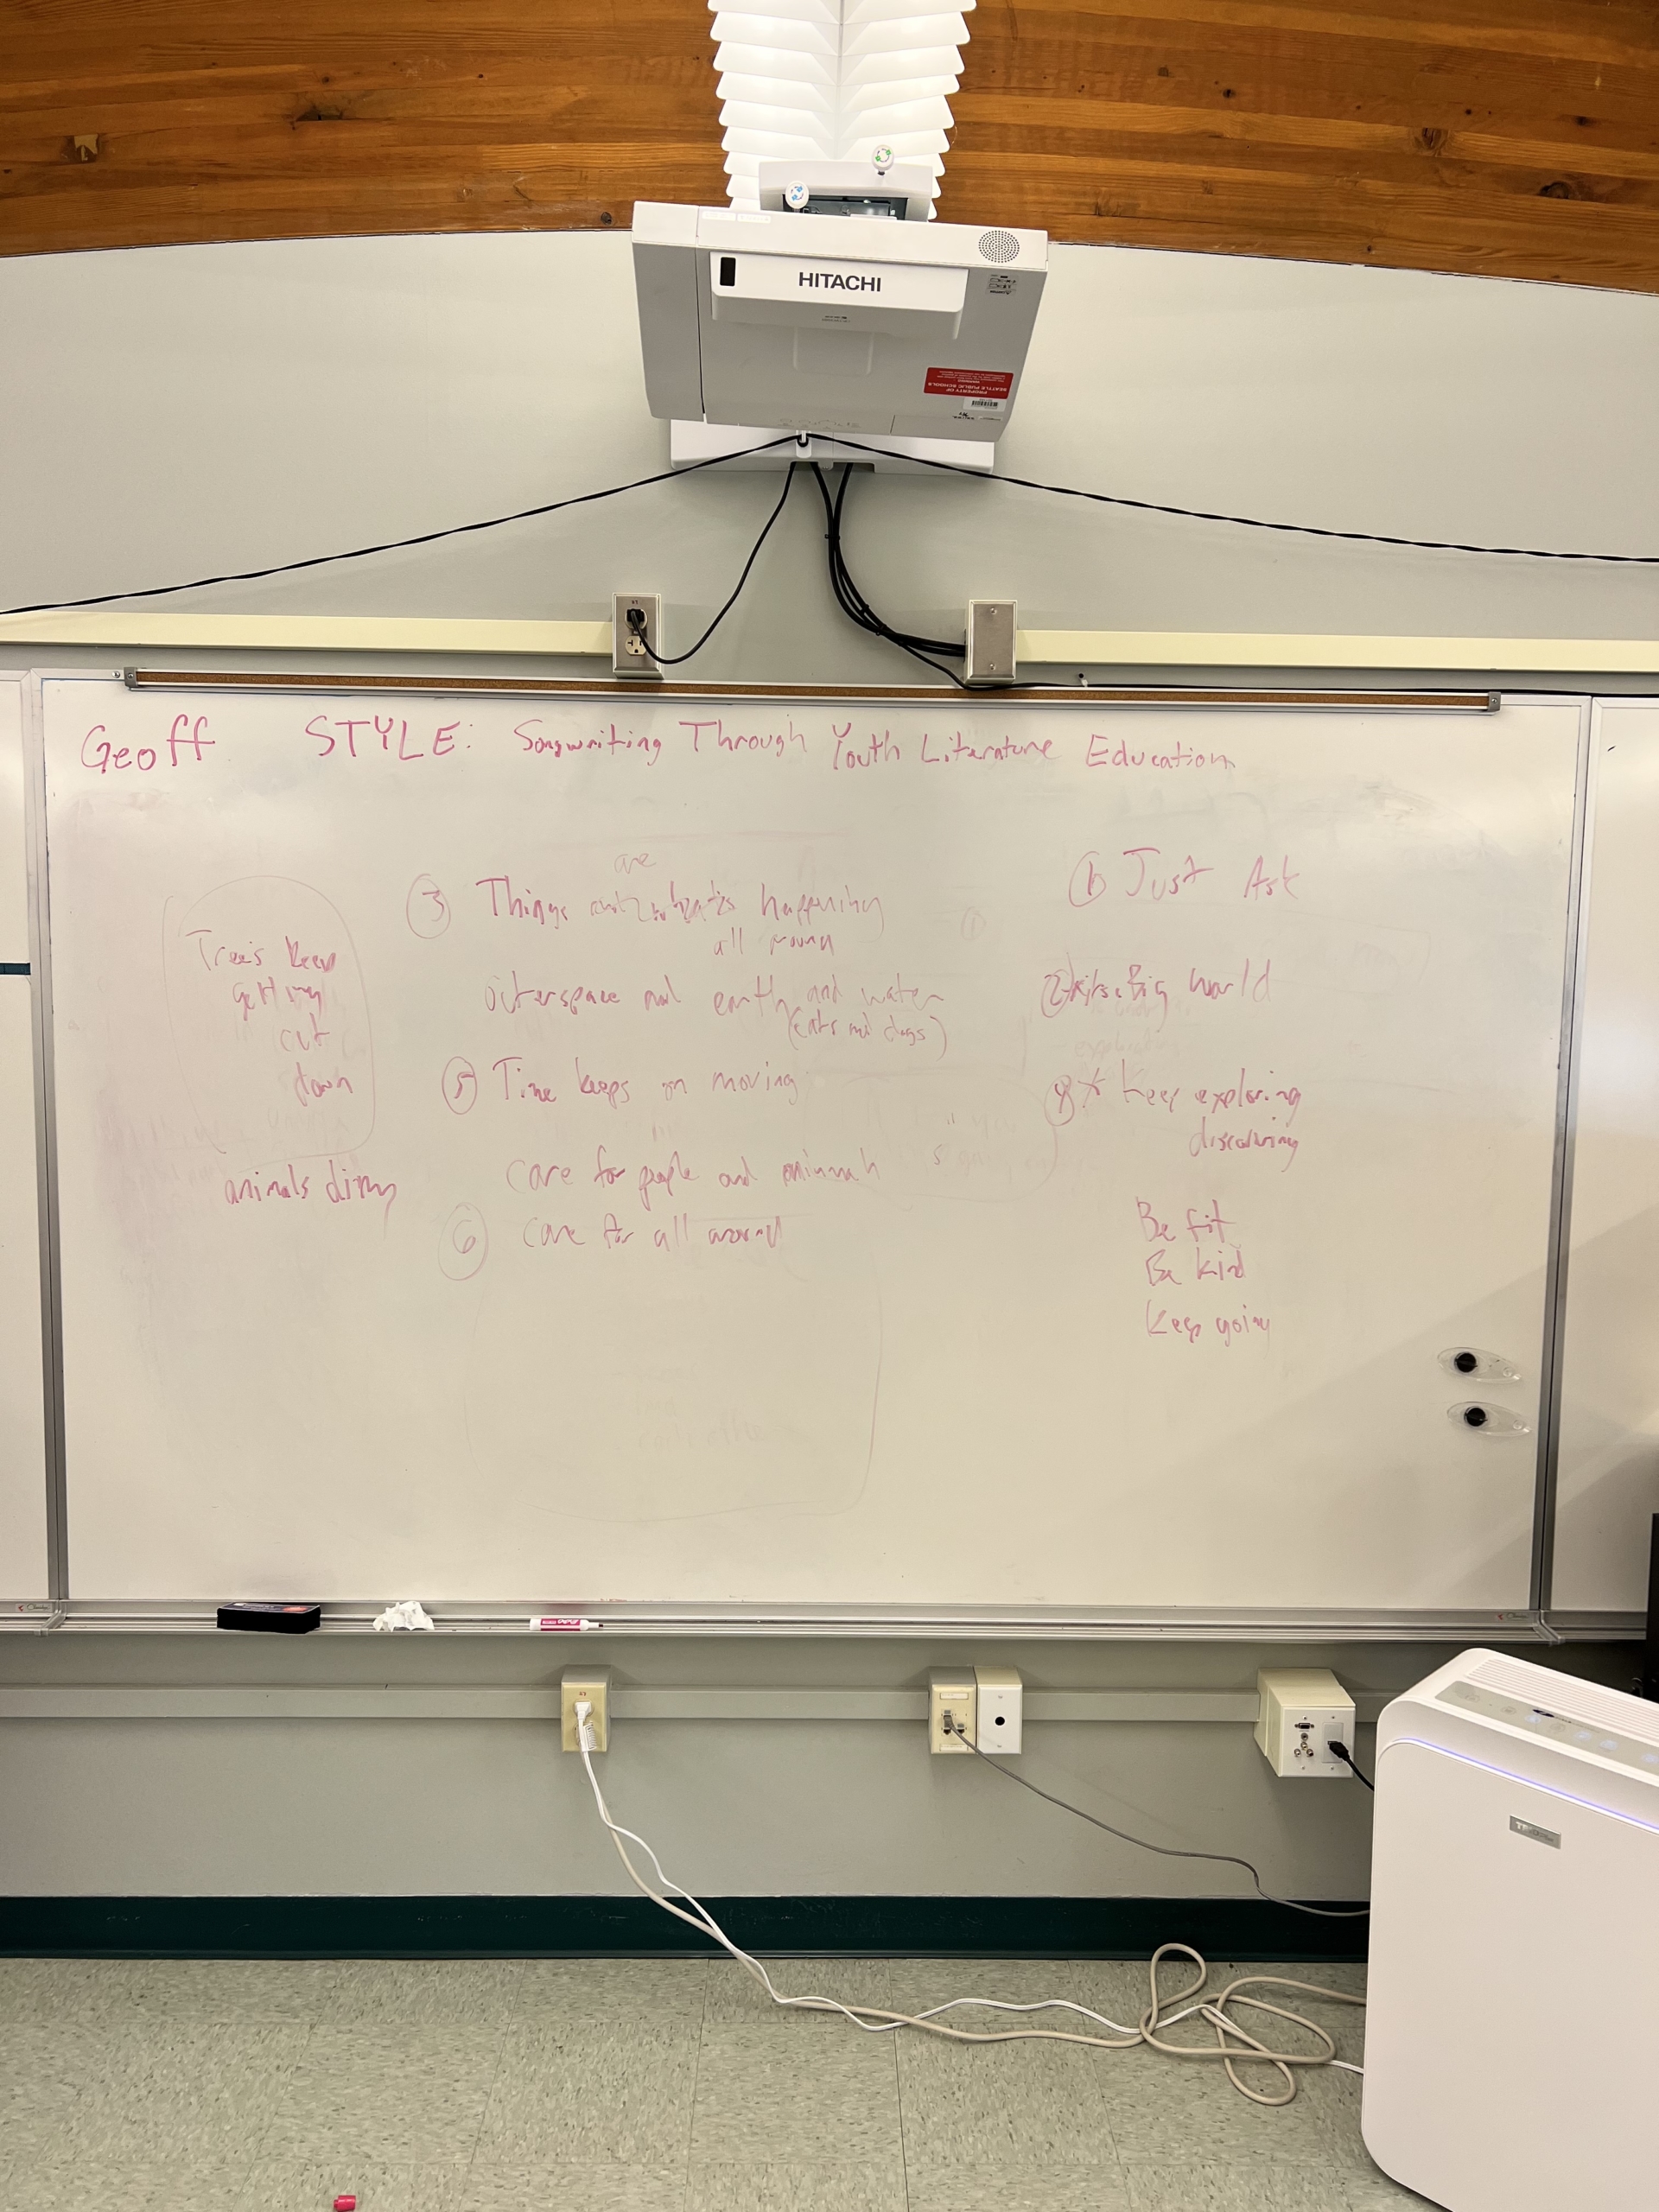 HITACHI
PROPERTY OF
SEATTLE PUBLIC SCHOOLS
Geoff STYLE: Songwriting Through Youth Literature Education
Trees keep
getting
cut
down
animals diing
are
③ Things happening
all around
outerspace and earth and water
(cats and dogs)
⑤ Time keeps on moving
care for people and animals
⑥ care for all around
① Just Ask
Big world
* keep exploring
discovering
Be fit
Be kind
keep going